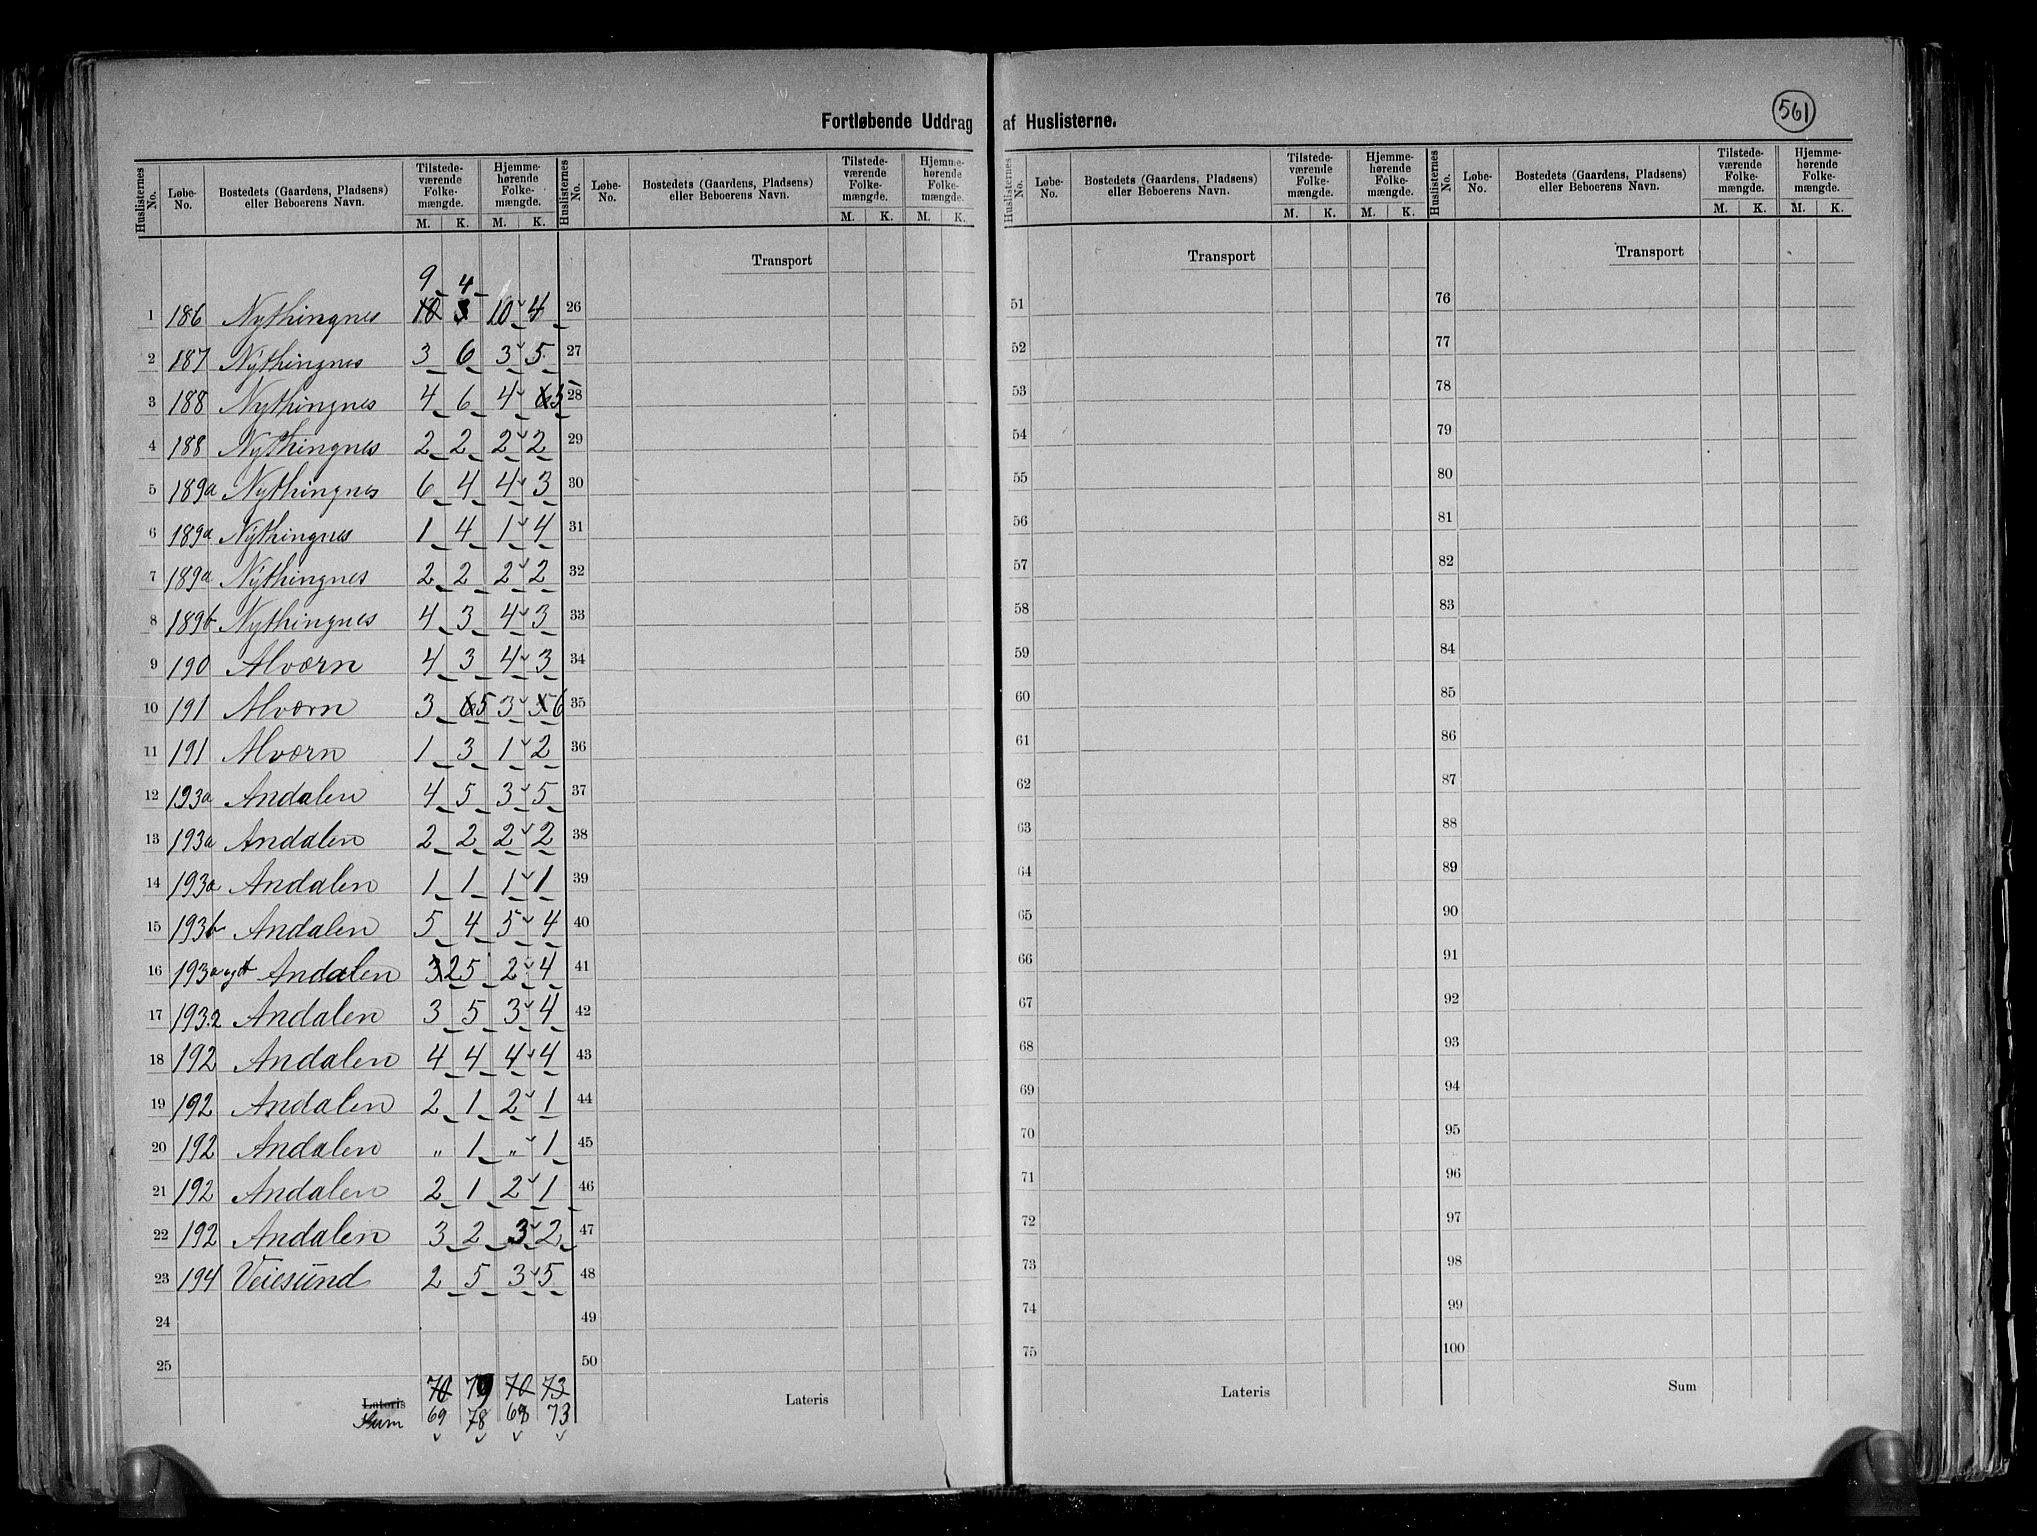 Fortløbende Uddrag af Huslisterne.
561
Huslisternes No. Løbe-No. Bostedets (Gaardens, Pladsens) eller Beboerens Navn. Tilstede-værende Folke-mængde. M. K. Hjemme-hørende Folke-mængde. M. K.
Huslisternes No. Løbe-No. Bostedets (Gaardens, Pladsens) eller Beboerens Navn. Tilstede-værende Folke-mængde. M. K. Hjemme-hørende Folke-mængde. M. K.
Huslisternes No. Løbe-No. Bostedets (Gaardens, Pladsens) eller Beboerens Navn. Tilstede-værende Folke-mængde. M. K. Hjemme-hørende Folke-mængde. M. K.
Huslisternes No. Løbe-No. Bostedets (Gaardens, Pladsens) eller Beboerens Navn. Tilstede-værende Folke-mængde. M. K. Hjemme-hørende Folke-mængde. M. K.
Transport Transport Transport
9 4
1 186 Nythingnes 10 3 10 4 26 51 76
2 187 Nythingnes 3 6 3 5 27 52 77
3 188 Nythingnes 4 6 4 6 3 28 53 78
4 188 Nythingnes 2 2 2 2 29 54 79
5 189a Nythingnes 6 4 4 3 30 55 80
6 189a Nythingnes 1 4 1 4 31 56 81
7 189a Nythingnes 2 2 2 2 32 57 82
8 189b Nythingnes 4 3 4 3 33 58 83
9 190 Alværn 4 3 4 3 34 59 84
10 191 Alværn 3 6 5 3 5 6 35 60 85
11 191 Alværn 1 3 1 2 36 61 86
12 193a Andalen 4 5 3 5 37 62 87
13 193a Andalen 2 2 2 2 38 63 88
14 193a Andalen 1 1 1 1 39 64 89
15 193b Andalen 5 4 5 4 40 65 90
16 193a og b Andalen 3 2 5 2 4 41 66 91
17 193.2 Andalen 3 5 3 4 42 67 92
18 192 Andalen 4 4 4 4 43 68 93
19 192 Andalen 2 1 2 1 44 69 94
20 192 Andalen " 1 " 1 45 70 95
21 192 Andalen 2 1 2 1 46 71 96
22 192 Andalen 3 2 3 2 47 72 97
23 194 Veiesund 2 5 3 5 48 73 98
24 49 74 99
25 50 75 100
70 79 70 73
Lateris Lateris Lateris Sum
Sum 69 78 68 73